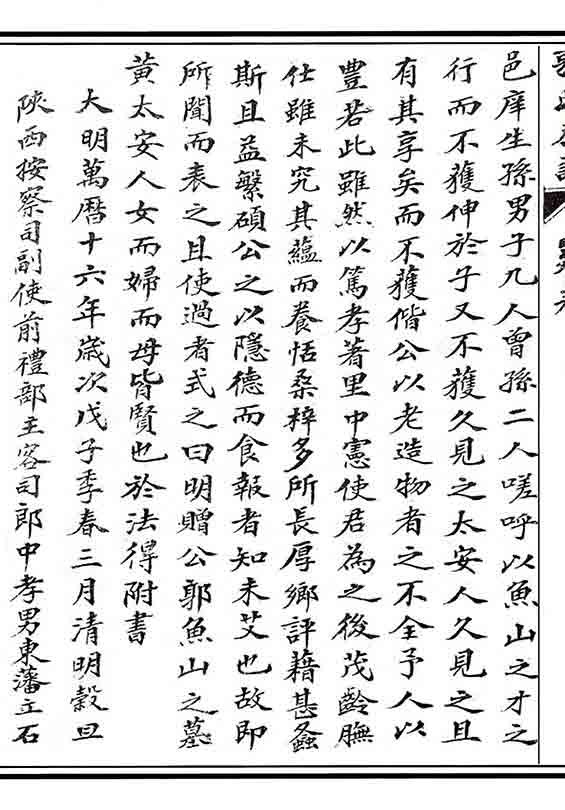 邑庠生孫男子九人曾孫二人嗟呼以魚山之才之
行而不獲伸於子又不獲久見之太安人久見之且
有其享矣而不獲偕公以老造物者之不全予人以
豐若此雖然以篤孝著里中憲使君為之後茂齡膴
仕雖未究其蘊而養恬桑梓多所長厚鄉評藉甚螽
斯且益繁碩公之以隱德而食報者知未艾也故即
所聞而表之且使過者式之曰明贈公郭魚山之墓
黃太安人女而婦而母皆賢也於法得附書
大明萬曆十六年歲次戊子季春三月清明穀旦
陝西按察司副使前禮部主客司郎中孝男東藩立石